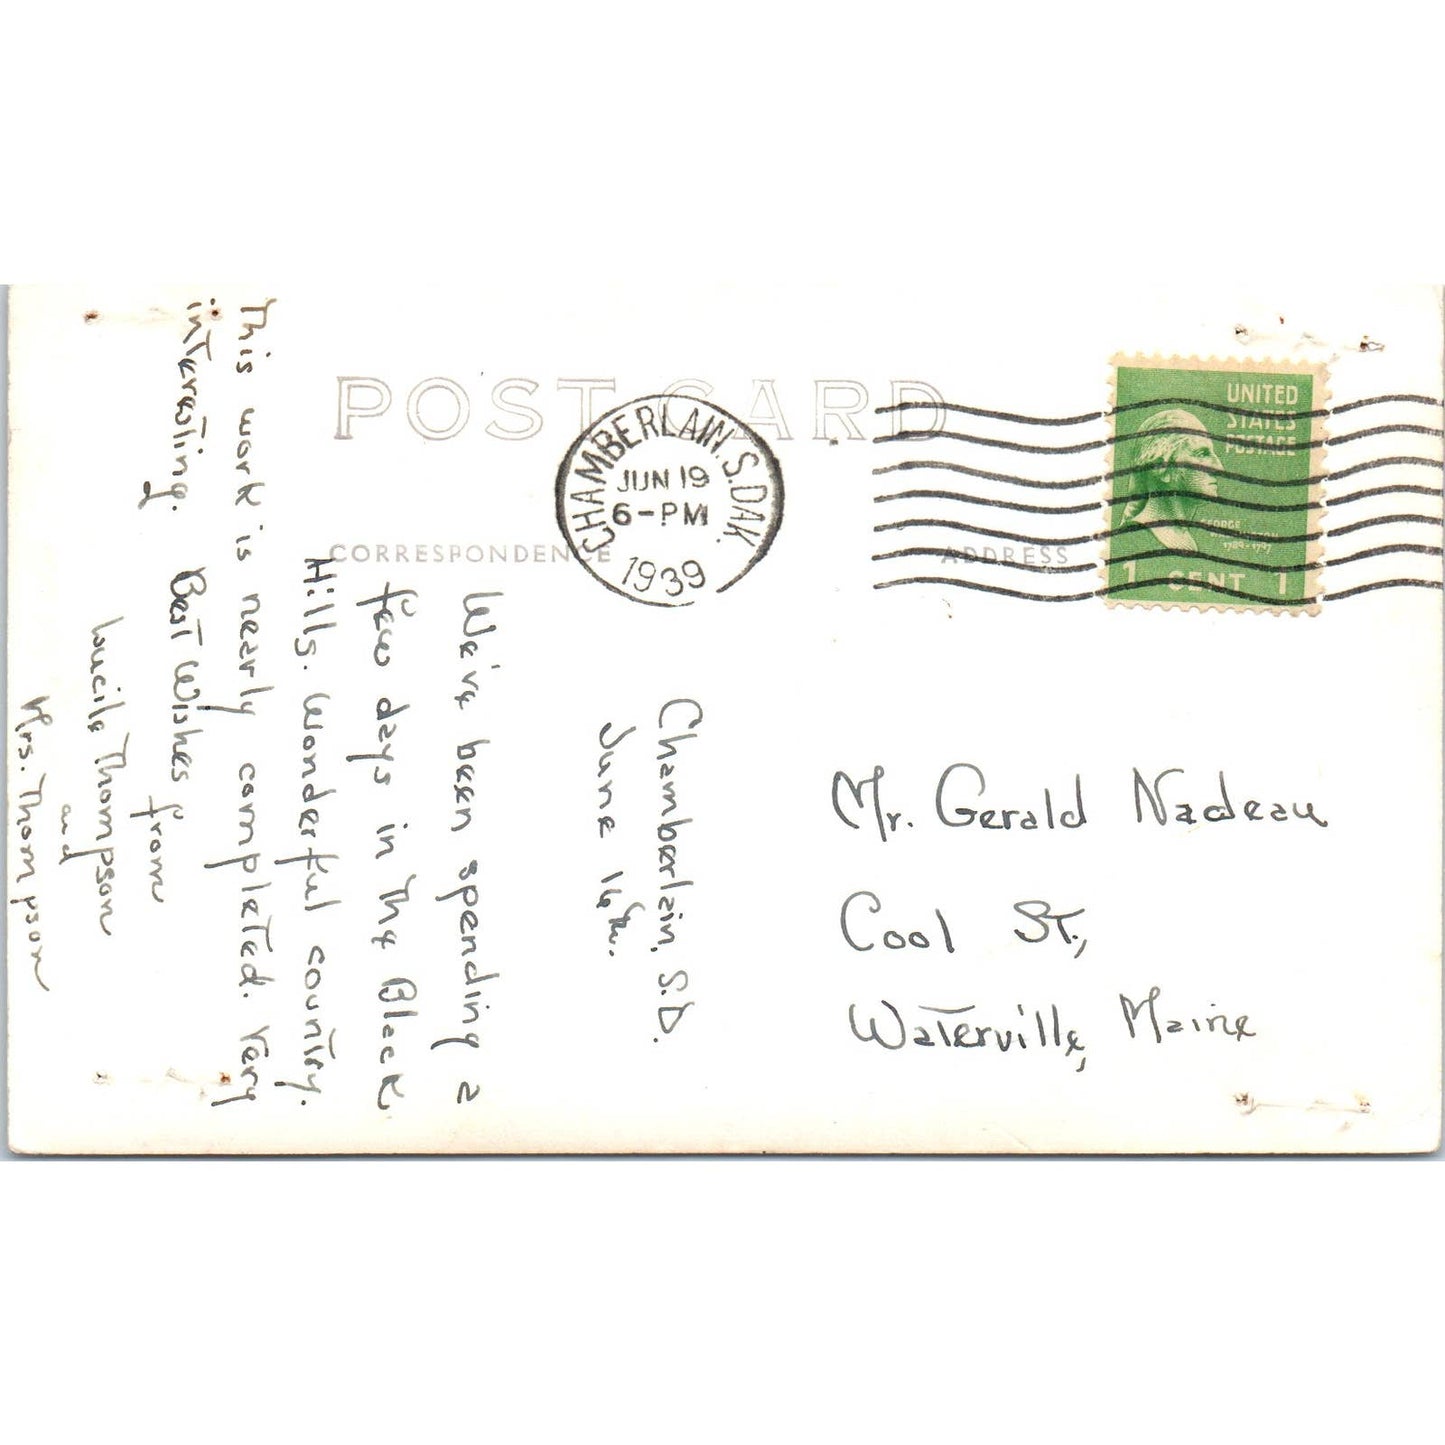 POST CARD
CHAMBERLAIN. S.DAK.
JUN 19
6-PM
1939
UNITED
STATES
POSTAGE
GEORGE
1 CENT 1
CORRESPONDENCE
ADDRESS
Chamberlain, S.D.
June 16th.
We've been spending a
few days in the Black
Hills. Wonderful country.
This work is nearly completed. Very
interesting.
Best Wishes
from
Lucile Thompson
and
Mrs. Thompson
Mr. Gerald Nadeau
Cool St.,
Waterville, Maine